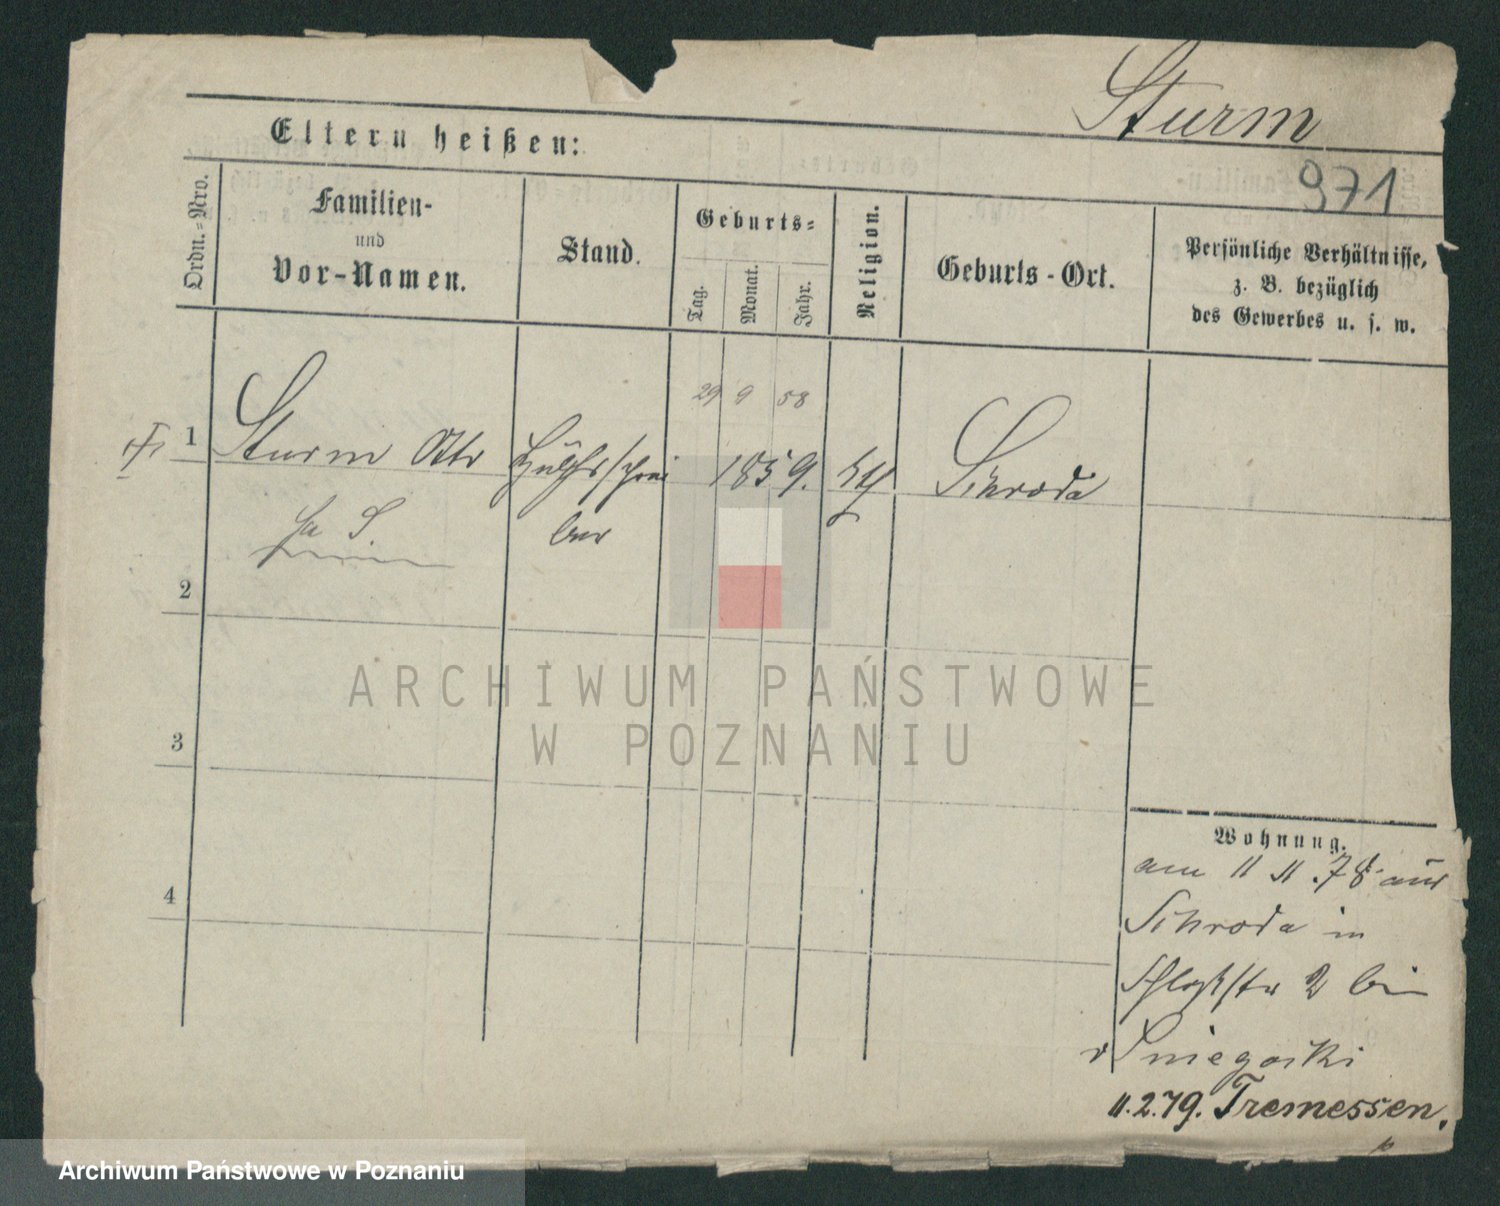 Sturm
971
Eltern heißen:
Ordn.-Nro.
Familien-
und
Vor-Namen.
Stand.
Geburts-
Tag.
Monat.
Jahr.
Religion.
Geburts-Ort.
Persönliche Verhältnisse,
z. B. bezüglich
des Gewerbes u. s. w.
29 9 58
1 Sturm Otto Hülfsschrei 1859. kth Schroda
ber
2
3
4
ARCHIWUM PAŃSTWOWE
W POZNANIU
Wohnung.
am 11 11.78 aus
Schroda in
2 bei
v Sniegocki
11.2.79. Tremessen.
Archiwum Państwowe w Poznaniu